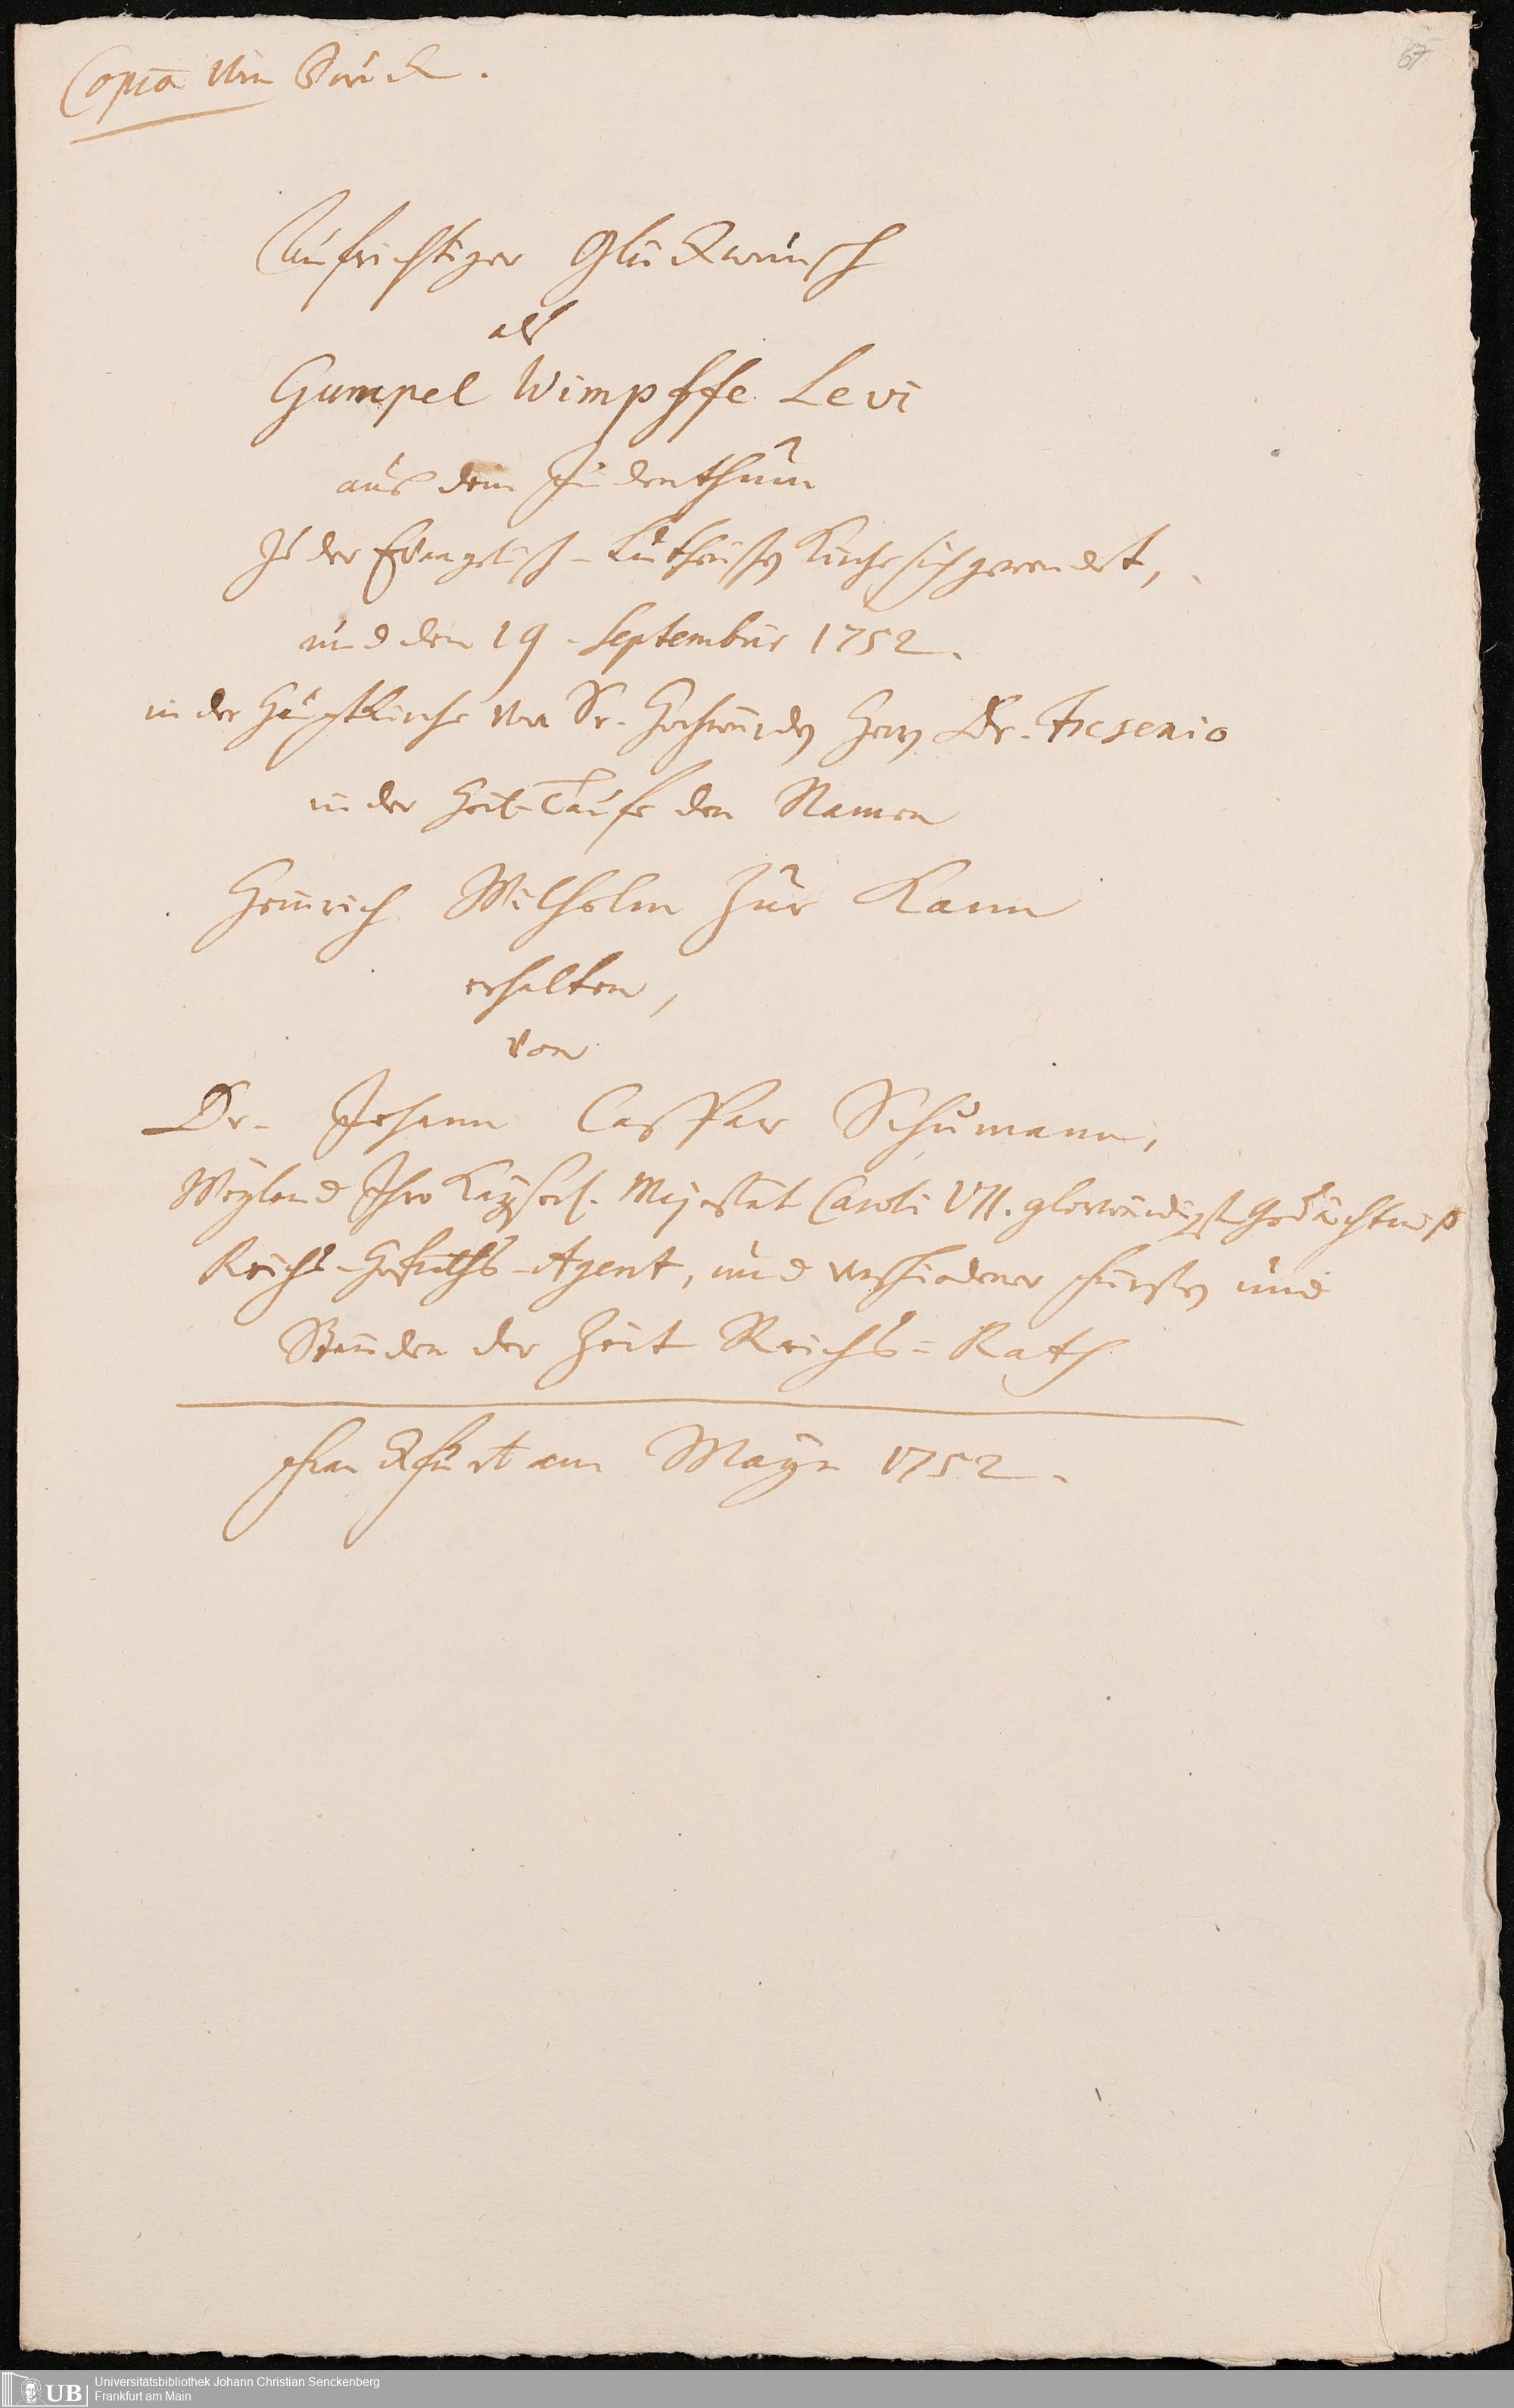 Copia vom Druck.
67
Aufrichtiger Glückwunsch
als
Gumpel Wimpffe Levi
aus dem Judenthum
zu der Evangelisch-Lutherischen Kirche sich gewendet,
und den 19. Septembris 1752.
in der Hauptkirche von Sr. Hochwürden Herrn Dr. Fresenio
in der Heil. Taufe den Namen
Heinrich Wilhelm zur Kann
erhalten,
von
Dr. Johann Caspar Schumann,
Weyland Ihro Kayserl. Majestät Caroli VII. glorwürdigst. Gedächtniß
Reichs-Hofraths-Agent, und verschiedener Fürsten und
Ständen der Zeit Reichs-Rath
Franckfurt am Mayn 1752.
UB
Universitätsbibliothek Johann Christian Senckenberg
Frankfurt am Main